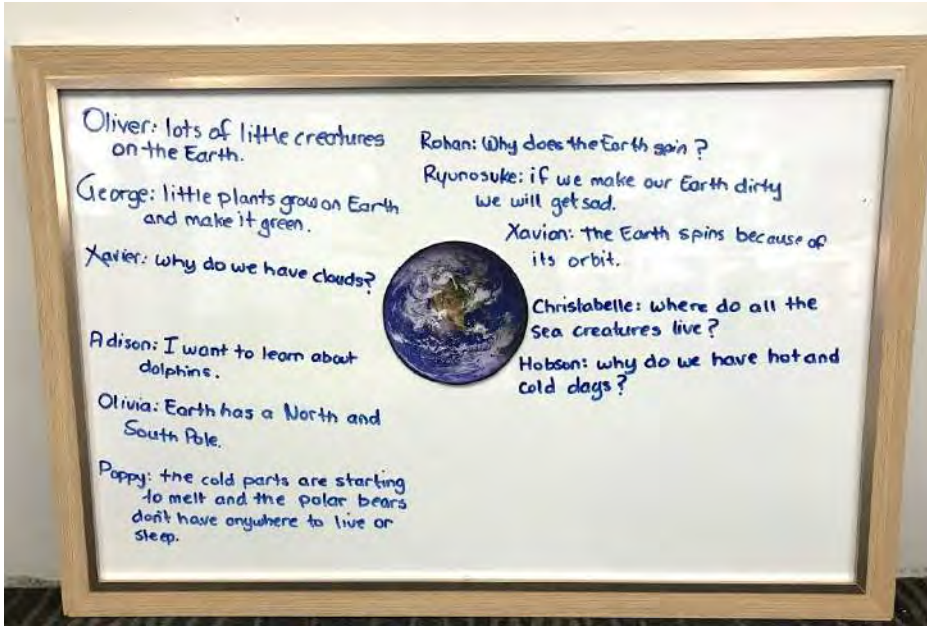 Oliver: lots of little creatures
on the Earth.
George: little plants grow on Earth
and make it green.
Xavier: why do we have clouds?
Adison: I want to learn about
dolphins.
Olivia: Earth has a North and
South Pole.
Poppy: the cold parts are starting
to melt and the polar bears
don't have anywhere to live or
sleep.
Rohan: Why does the Earth spin?
Ryunosuke: if we make our Earth dirty
we will get sad.
Xavian: the Earth spins because of
its orbit.
Christabelle: where do all the
sea creatures live?
Hobson: why do we have hot and
cold days?